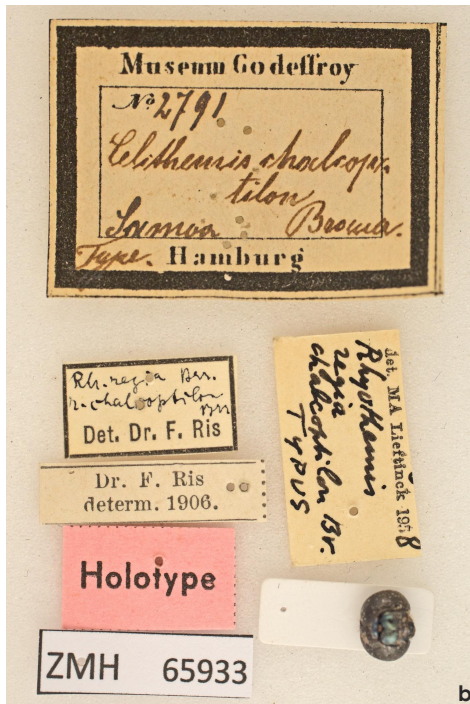 Museum Godeffroy
No 2791
Celithemis chalcop-
tilon
Samoa Braua.
Type. Hamburg
Rh. regia Brr.
r. chalcoptilon
Brr
Det. Dr. F. Ris
Dr. F. Ris
determ. 1906.
Holotype
ZMH 65933
det. MA Lieftinck 1958
Rhyothemis
regia
chalcoptilon Br.
TYPUS
b